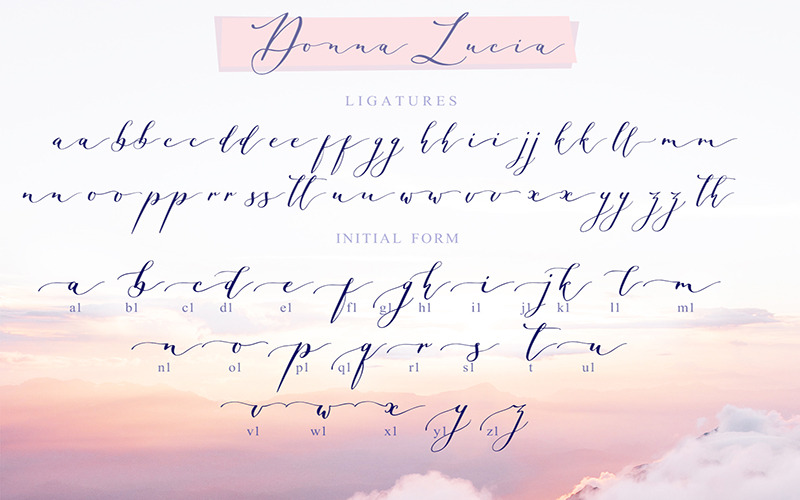 Donna Lucia
LIGATURES
aa bb cc dd ee ff gg hh ii jj kk ll mm
nn oo pp rr ss tt uu ww vv xx yy zz th
INITIAL FORM
a b c d e f g h i j k l m
al bl cl dl el fl gl hl il jl kl ll ml
n o p q r s t u
nl ol pl ql rl sl t ul
v w x y z
vl wl xl yl zl